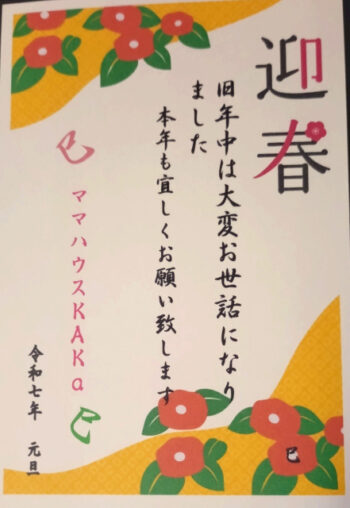 迎春
旧年中は大変お世話になり
ました
本年も宜しくお願い致します
巳 ママハウスKAKa 巳
令和七年 元旦
巳